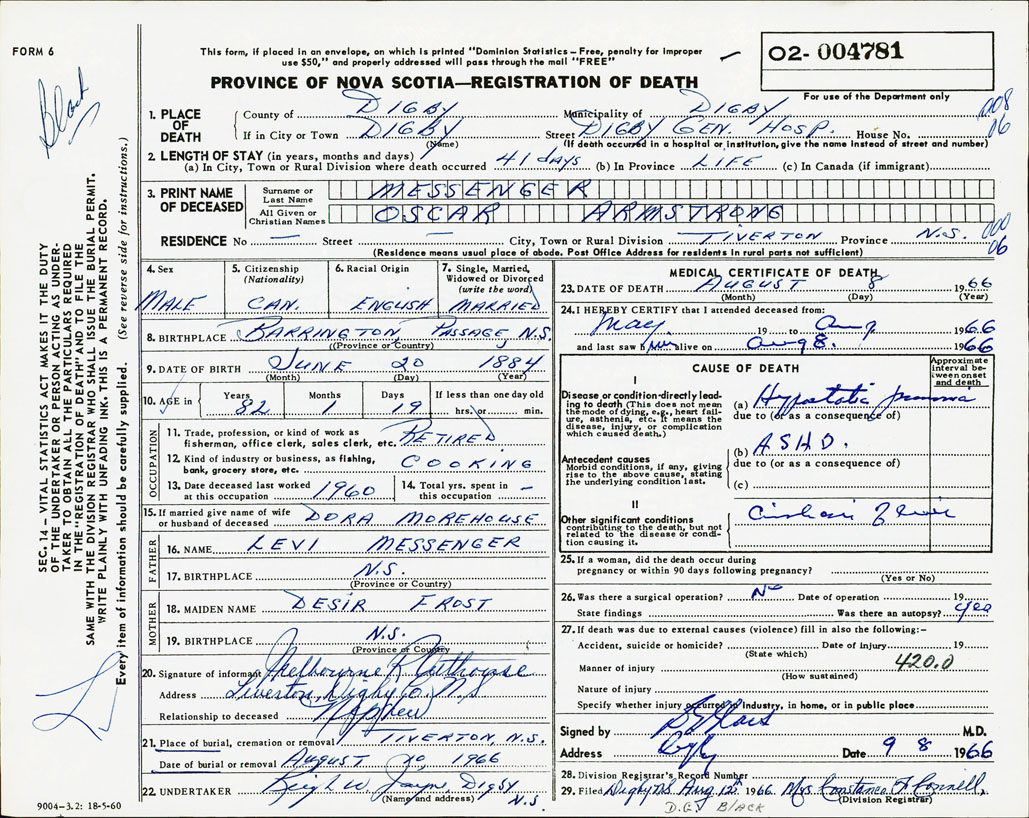 FORM 6
This form, if placed in an envelope, on which is printed "Dominion Statistics – Free, penalty for improper
use $50," and properly addressed will pass through the mail "FREE"
02- 004781
For use of the Department only
PROVINCE OF NOVA SCOTIA—REGISTRATION OF DEATH
Black
SEC. 14 – VITAL STATISTICS ACT MAKES IT THE DUTY
OF THE UNDERTAKER OR PERSON ACTING AS UNDER-
TAKER TO OBTAIN ALL THE PARTICULARS REQUIRED
IN THE "REGISTRATION OF DEATH" AND TO FILE THE
SAME WITH THE DIVISION REGISTRAR WHO SHALL ISSUE THE BURIAL PERMIT.
WRITE PLAINLY WITH UNFADING INK. THIS IS A PERMANENT RECORD.
Every item of information should be carefully supplied. (See reverse side for instructions.)
1. PLACE OF DEATH
County of DIGBY Municipality of DIGBY 008
If in City or Town DIGBY Street DIGBY GEN. HOSP. House No. 06
(Name) (If death occurred in a hospital or institution, give the name instead of street and number)
2. LENGTH OF STAY (in years, months and days)
(a) In City, Town or Rural Division where death occurred 41 days (b) In Province LIFE (c) In Canada (if immigrant)
3. PRINT NAME OF DECEASED
Surname or Last Name MESSENGER
All Given or Christian Names OSCAR ARMSTRONG
RESIDENCE No — Street — City, Town or Rural Division TIVERTON Province N.S. 000 06
(Residence means usual place of abode. Post Office Address for residents in rural parts not sufficient)
4. Sex MALE
5. Citizenship (Nationality) CAN.
6. Racial Origin ENGLISH
7. Single, Married, Widowed or Divorced (write the word) MARRIED
8. BIRTHPLACE BARRINGTON PASSAGE, N.S.
(Province or Country)
9. DATE OF BIRTH JUNE 20 1884
(Month) (Day) (Year)
10. AGE in Years 82 Months 1 Days 19 If less than one day old hrs. or min.
OCCUPATION
11. Trade, profession, or kind of work as fisherman, office clerk, sales clerk, etc. RETIRED
12. Kind of industry or business, as fishing, bank, grocery store, etc. COOKING
13. Date deceased last worked at this occupation 1960
14. Total yrs. spent in this occupation –
15. If married give name of wife or husband of deceased DORA MOREHOUSE
FATHER
16. NAME LEVI MESSENGER
17. BIRTHPLACE N.S.
(Province or Country)
MOTHER
18. MAIDEN NAME DESIR FROST
19. BIRTHPLACE N.S.
(Province or Country)
20. Signature of informant Melbourne R Outhouse
Address Tiverton, Digby Co. N.S.
Relationship to deceased Nephew
21. Place of burial, cremation or removal TIVERTON, N.S.
Date of burial or removal AUGUST 10, 1966
22. UNDERTAKER W. Jayne, DIGBY N.S.
(Name and address)
9004–3.2: 18-5-60
MEDICAL CERTIFICATE OF DEATH
23. DATE OF DEATH AUGUST 8 1966
(Month) (Day) (Year)
24. I HEREBY CERTIFY that I attended deceased from:
May 19 to Aug 1966
and last saw him alive on Aug 8. 1966
CAUSE OF DEATH
Approximate interval between onset and death
I
Disease or condition directly leading to death (This does not mean the mode of dying, e.g., heart failure, asthenia, etc. It means the disease, injury, or complication which caused death.)
(a) Hypostatic pneumonia
due to (or as a consequence of)
Antecedent causes
Morbid conditions, if any, giving rise to the above cause, stating the underlying condition last.
(b) ASHD.
due to (or as a consequence of)
(c)
II
Other significant conditions contributing to the death, but not related to the disease or condition causing it. Cirrhosis of liver
25. If a woman, did the death occur during pregnancy or within 90 days following pregnancy?
(Yes or No)
26. Was there a surgical operation? No Date of operation 19
State findings Was there an autopsy? yes
27. If death was due to external causes (violence) fill in also the following:–
Accident, suicide or homicide? Date of injury 19
(State which)
Manner of injury 420.0
(How sustained)
Nature of injury
Specify whether injury occurred in industry, in home, or in public place
Signed by M.D.
Address Digby Date 9 8 1966
28. Division Registrar's Record Number
29. Filed Digby N.S. Aug. 12th 1966. Mrs. Constance F. Connell,
(Division Registrar)
D.G. BLACK